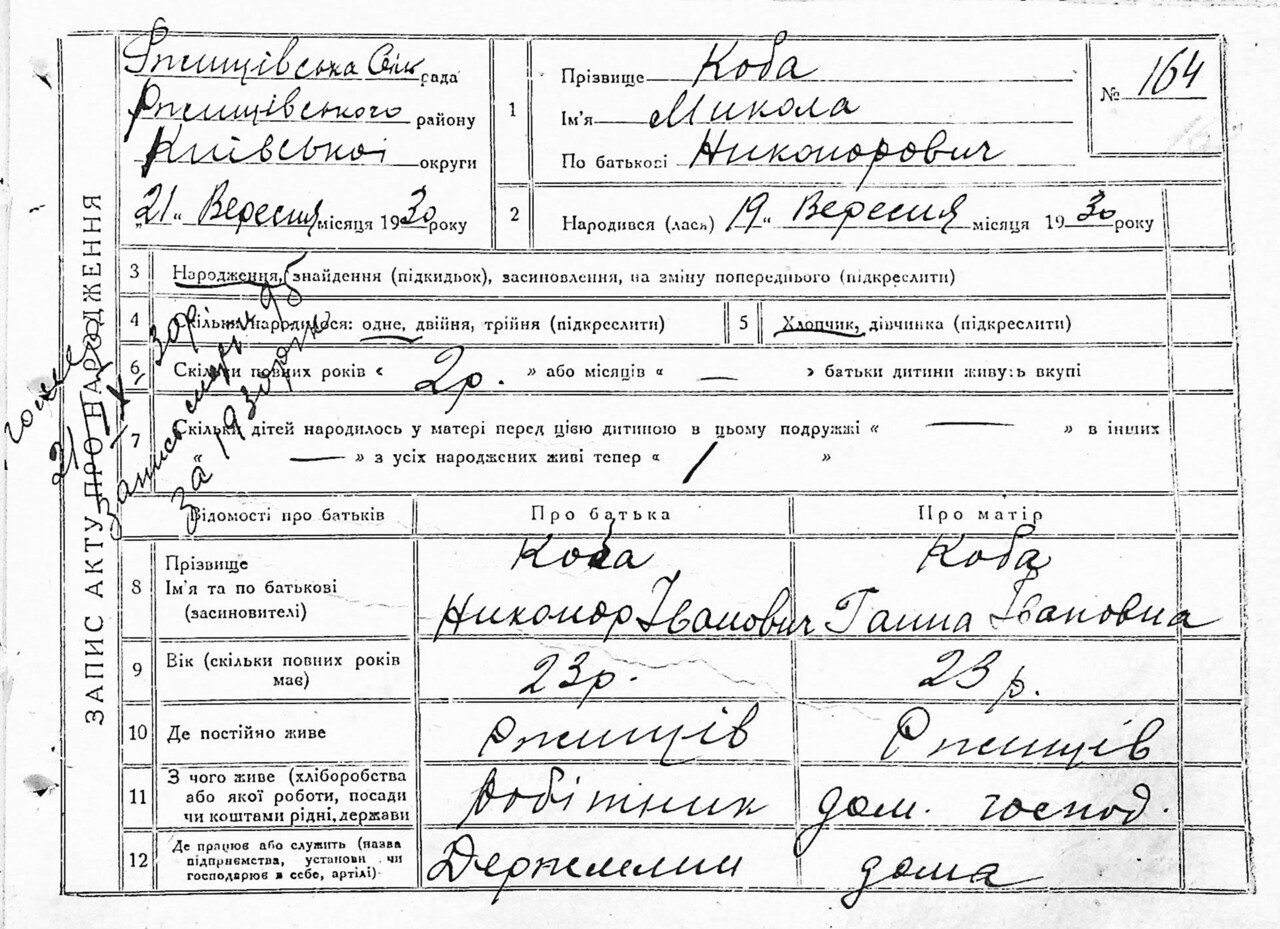 ЗАПИС АКТУ ПРО НАРОДЖЕННЯ
Ржищівська Сіль рада
Ржищівського району
Київської округи
„21“ Вересня місяця 1930 року
1
Прізвище Коба
Ім'я Микола
По батькові Никонорович
№ 164
2
Народився (лася) 19 “ Вересня місяця 1930 року
3 Народження, знайдення (підкидьок), засиновлення, на зміну попереднього (підкреслити)
4 Скільки народилося: одне, двійня, трійня (підкреслити)
5 Хлопчик, дівчинка (підкреслити)
6 Скільки повних років « 2р. » або місяців « — » батьки дитини живуть вкупі
7 Скільки дітей народилось у матері перед цією дитиною в цьому подружжі « — » в інших
« — » з усіх народжених живі тепер « 1 »
21/IX 30р.
за 1930р
Відомості про батьків Про батька Про матір
8 Прізвище
Ім'я та по батькові
(засиновителі)
Коба
Никонор Іванович
Коба
Ганна Івановна
9 Вік (скільки повних років
має)
23р. 23р.
10 Де постійно живе Ржищів Ржищів
11 З чого живе (хліборобства
або якої роботи, посади
чи коштами рідні, держави
Робітник дом. господ.
12 Де працює або служить (назва
підприємства, установи чи
господарює в себе, артілі)
Держмлин дома